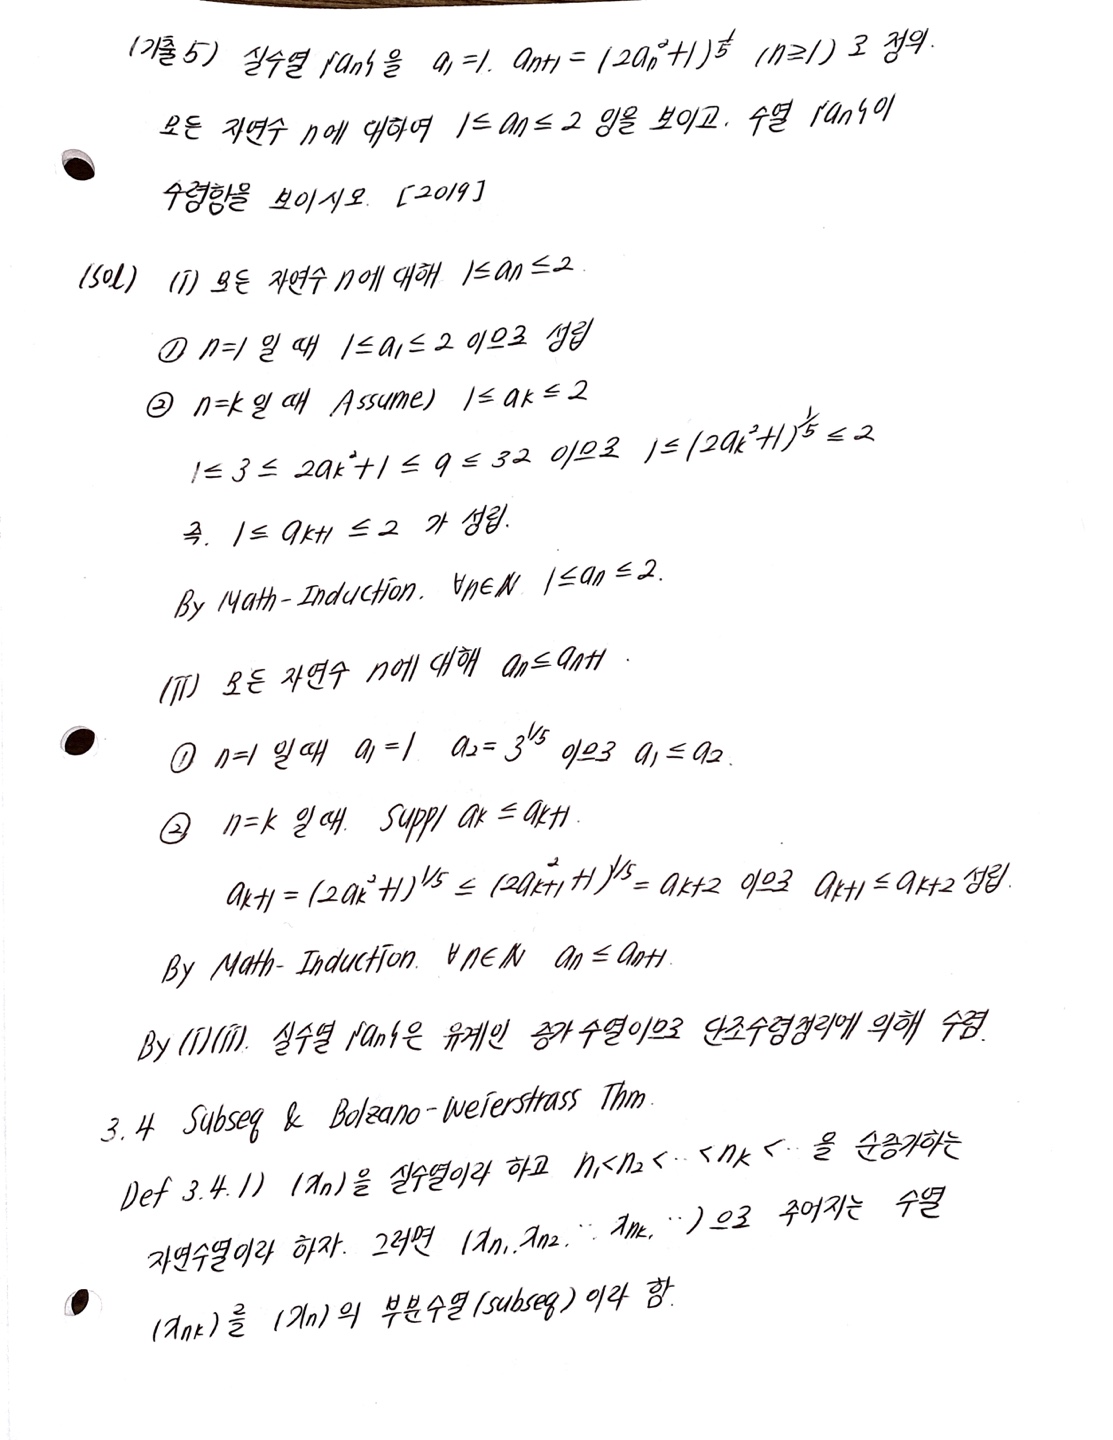 (기출 5) 실수열 {an}을 a₁=1. an+1 = (2an²+1)^1/5 (n≥1) 로 정의.
모든 자연수 n에 대하여 1≤an≤2 임을 보이고. 수열 {an}이
수렴함을 보이시오. [2019]
(sol) (i) 모든 자연수 n에 대해 1≤an≤2.
① n=1 일 때 1≤a₁≤2 이므로 성립
② n=k일 때 Assume) 1≤ak≤2
1≤3≤2ak²+1≤9≤32 이므로 1≤(2ak²+1)^1/5≤2
즉. 1≤ak+1≤2 가 성립.
By Math-Induction. ∀n∈ℕ 1≤an≤2.
(ii) 모든 자연수 n에 대해 an≤an+1.
① n=1 일 때 a₁=1 a₂=3^1/5 이므로 a₁≤a₂.
② n=k 일 때. Supp) ak≤ak+1.
ak+1=(2ak²+1)^1/5≤(2ak+1²+1)^1/5=ak+2 이므로 ak+1≤ak+2 성립.
By Math-Induction. ∀n∈ℕ an≤an+1.
By (i)(ii). 실수열 {an}은 유계인 증가수열이므로 단조수렴정리에 의해 수렴.
3.4 Subseq & Bolzano-Weierstrass Thm.
Def 3.4.1) (xn)을 실수열이라 하고 n₁<n₂<‥<nk<‥ 을 순증가하는
자연수열이라 하자. 그러면 (xn₁,xn₂,‥,xnk,‥)으로 주어지는 수열
(xnk)를 (xn)의 부분수열(subseq)이라 함.